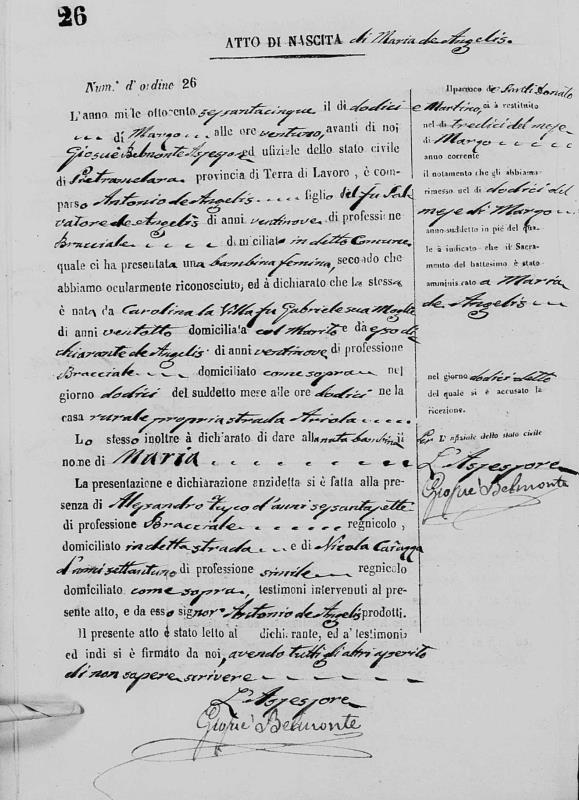 26
ATTO DI NASCITA di Maria de Angelis.
Num.° d'ordine 26
L'anno mille ottocento sessantacinque il dì dodici
di Marzo alle ore ventuno, avanti di noi
Giosuè Belmonte Assessore ed ufiziale dello stato civile
di Pietramelara provincia di Terra di Lavoro, è com-
parso Antonio de Angelis figlio del fu Sal
vatore de Angelis di anni ventinove di professione
Bracciale domiciliato in detto Comune
quale ci ha presentata una bambina femina, secondo che
abbiamo ocularmente riconosciuto, ed à dichiarato che la stessa
è nata da Carolina la Villa fu Gabriele sua Moglie
di anni ventotto domiciliata col Marito e da esso di
chiarante de Angelis di anni ventinove di professione
Bracciale domiciliato come sopra nel
giorno dodici del suddetto mese alle ore dodici ne la
casa rurale propria strada Ariola
Lo stesso inoltre à dichiarato di dare alla nata bambina il
nome di Maria
La presentazione e dichiarazione anzidetta si è fatta alla pre-
senza di Alessandro d'anni sessantasette
di professione Bracciale regnicolo,
domiciliato in detta strada e di Nicola
d'anni settantuno di professione simile regnicolo
domiciliato come sopra, testimoni intervenuti al pre-
sente atto, e da esso signor Antonio de Angelis prodotti.
Il presente atto è stato letto al dichiarante, ed a' testimoni
ed indi si è firmato da noi, avendo tutti gli altri asserito
di non sapere scrivere
L'Assessore
Giosuè Belmonte
Il parroco de' Santi Donato
e Martino, ci à restituito
nel dì tredici del mese
di Marzo
anno corrente
il notamento che gli abbiamo
rimesso nel dì dodici del
mese di Marzo
anno suddetto in piè del qua-
le à indicato che il Sacra-
mento del battesimo è stato
amministrato a Maria
de Angelis
nel giorno dodici detto
del quale si è accusato la
ricezione.
Per L' ufiziale dello stato civile
L'Assessore
Giosuè Belmonte